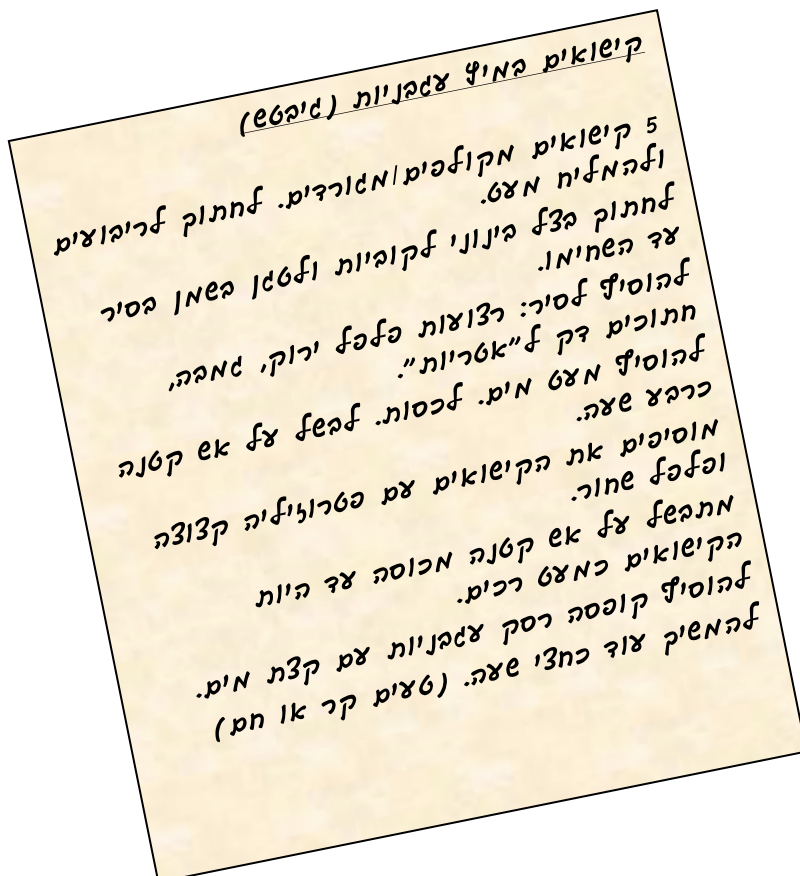 קישואים במיץ עגבניות (גיבטש)
5 קישואים מקולפים/מגורדים. לחתוך לריבועים
ולהמליח מעט.
לחתוך בצל בינוני לקוביות ולטגן בשמן בסיר
עד השחימו.
להוסיף לסיר: רצועות פלפל ירוק, גמבה,
חתוכים דק ל"אטריות".
להוסיף מעט מים. לכסות. לבשל על אש קטנה
כרבע שעה.
מוסיפים את הקישואים עם פטרוזיליה קצוצה
ופלפל שחור.
מתבשל על אש קטנה מכוסה עד היות
הקישואים כמעט רכים.
להוסיף קופסה רסק עגבניות עם קצת מים.
להמשיך עוד כחצי שעה. (טעים קר או חם)